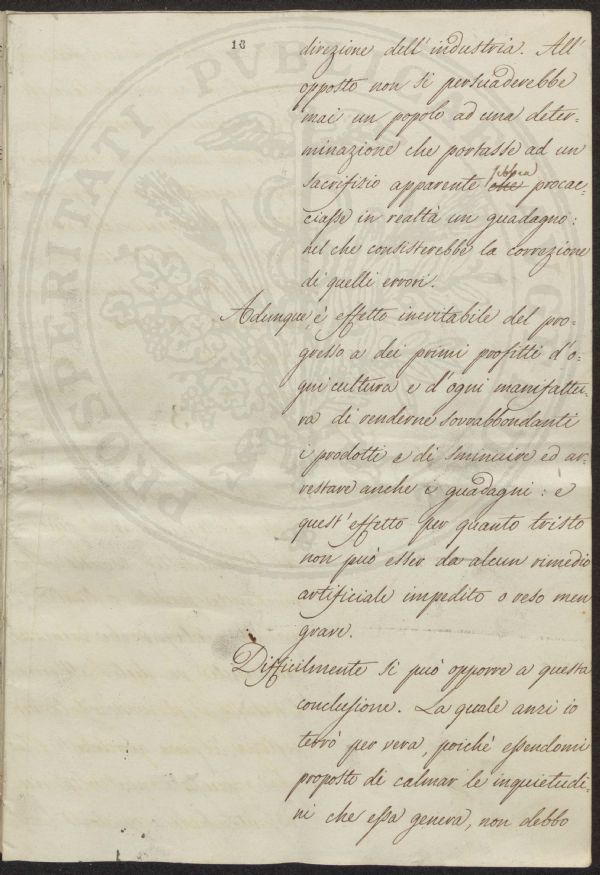 18
direzione dell'industria. All'
opposto non si persuaderebbe
mai un popolo ad una deter=
minazione che portasse ad un
sacrifizio apparente che procac=
ciasse in realtà un guadagno:
nel che consisterebbe la correzione
di quelli errori.
Adunque, è effetto inevitabile del pro=
gresso e dei primi profitti d'o=
gni cultura e d'ogni manifattu=
ra di renderne sovrabbondanti
i prodotti e di sminuire ed ar=
restare anche i guadagni: e
quest'effetto per quanto tristo
non può esser da alcun rimedio
artificiale impedito o reso men
grave.
Difficilmente si può opporre a questa
conclusione. La quale anzi io
terrò per vera, poiché essendomi
proposto di calmar le inquietudi=
ni che essa genera, non debbo
PROSPERITATI PVBLICAE